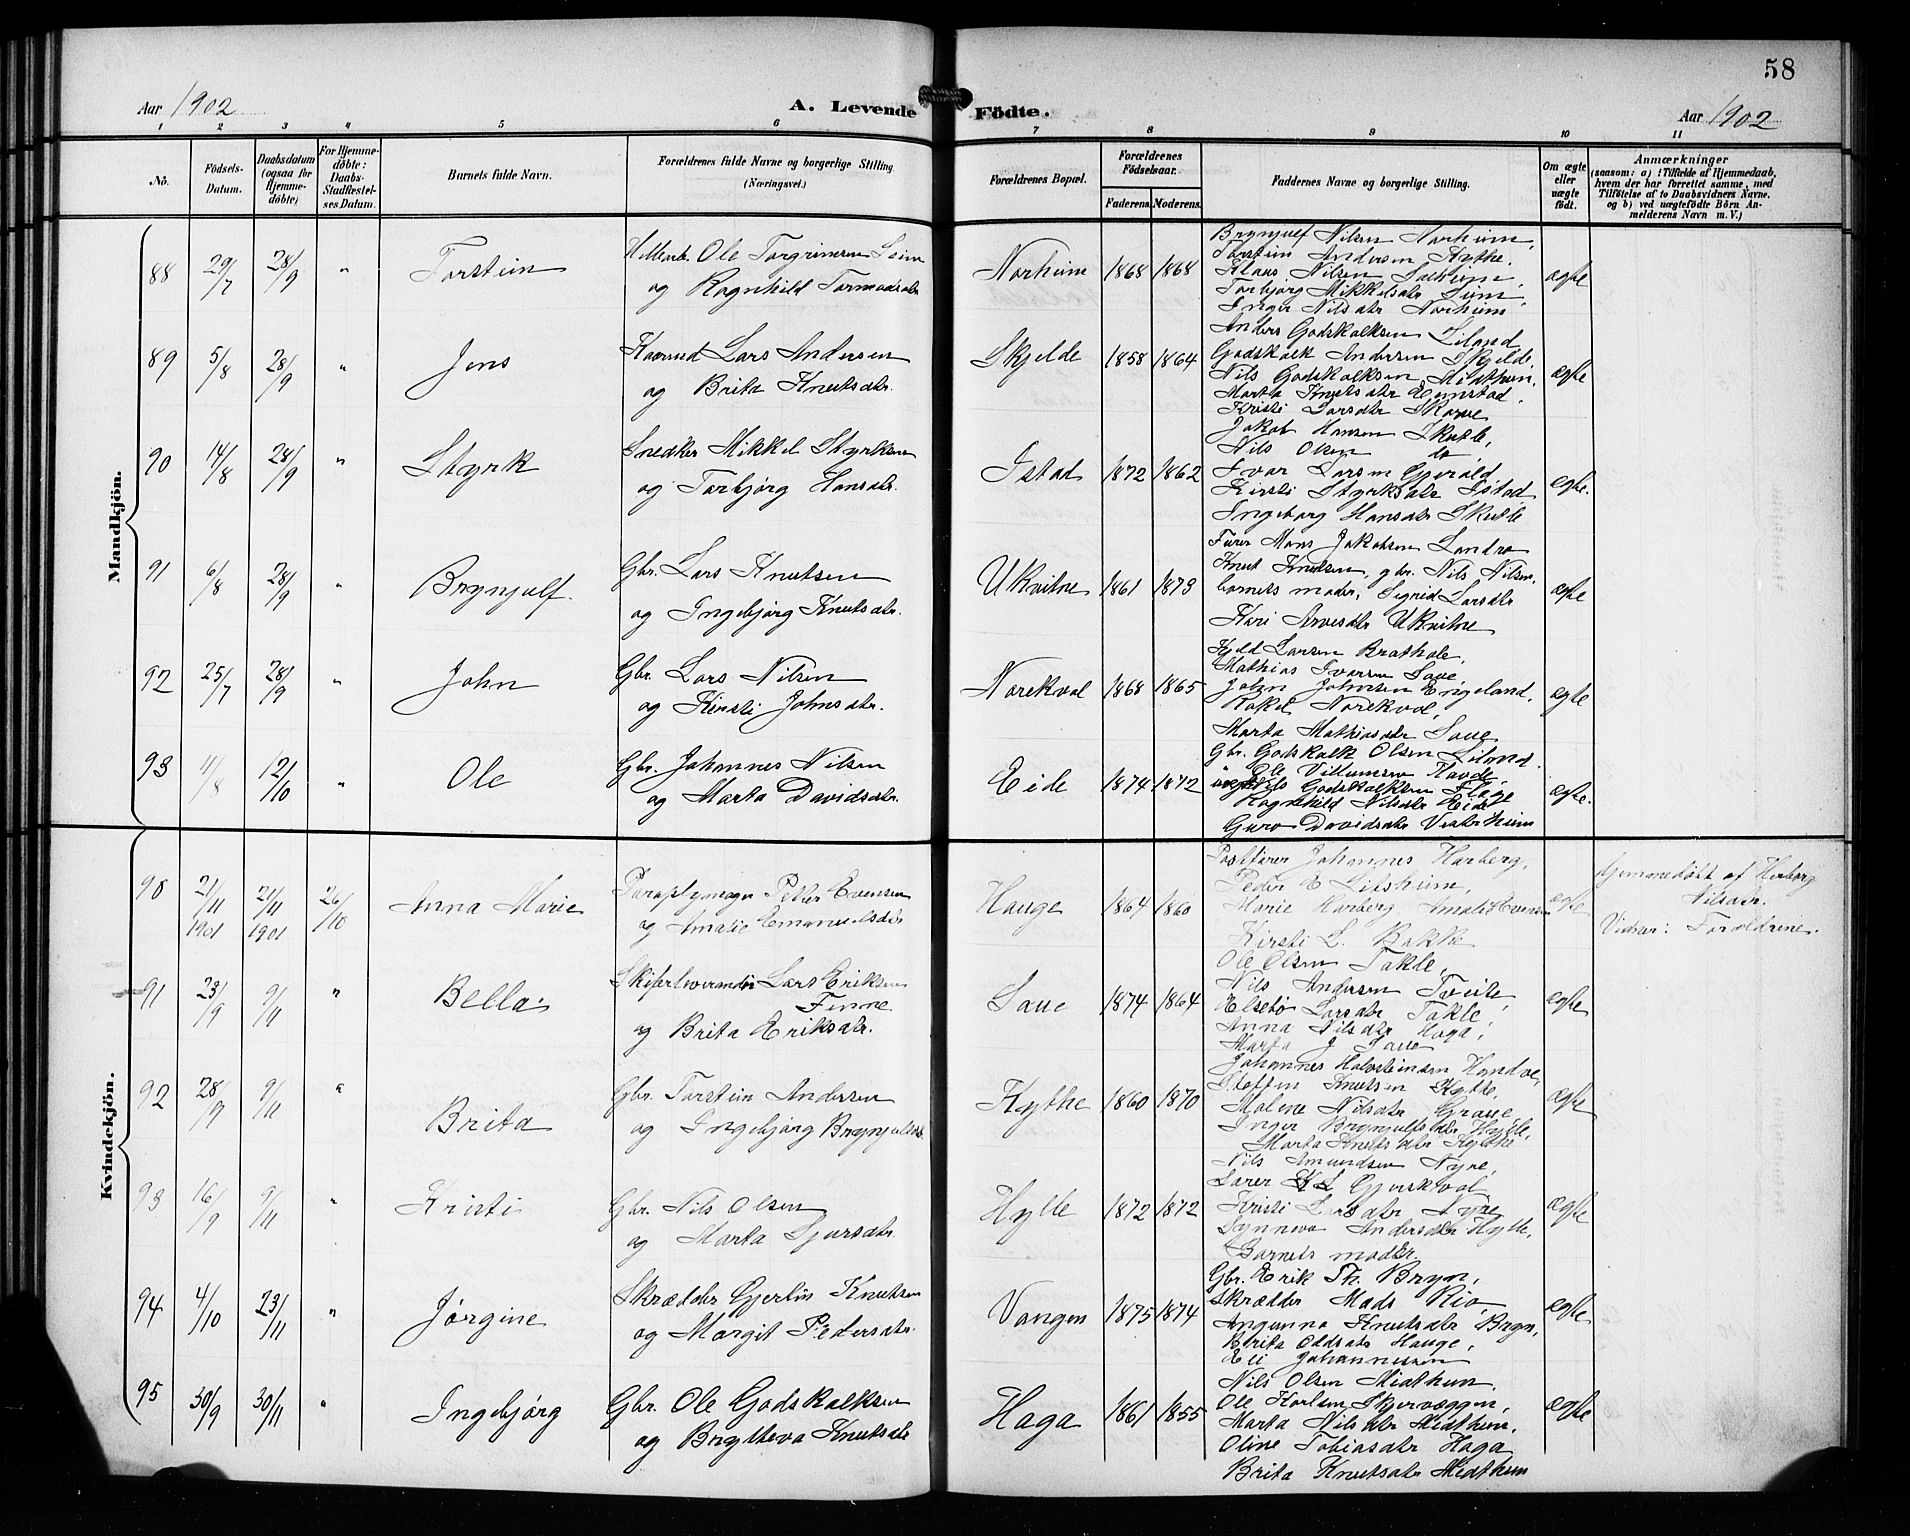 58
Aar 1902
A. Levende Födte.
Aar 1902
1 2 3 4 5 6 7 8 9 10 11
No.
Födsels-Datum.
Daabsdatum (ogsaa for Hjemme-döbte)
For Hjemme-döbte: Daabs-Stadfæstel-ses Datum.
Barnets fulde Navn.
Forældrenes fulde Navne og borgerlige Stilling (Næringsvei.)
Forældrenes Bopæl.
Forældrenes Födselsaar.
Faderens. Moderens.
Faddernes Navne og borgerlige Stilling.
Om ægte eller uægte födt.
Anmærkninger
(saasom: a) i Tilfælde af Hjemmedaab,
hvem der har forrettet samme, med
Tilföielse af to Daabsvidners Navne,
og b) ved uægtefödte Börn An-
melderens Navn m. V.)
Mandkjön.
88 29/7 28/9 " Torstein
Ole Torgrimsen Seim
og Ragnhild Tormodsdtr
Norheim 1868 1868
Brynjulf Nilsen Norheim,
Torstein Andersen Kythe,
Klaus Nilsen Solheim,
Torbjørg Mikkelsdtr Seim,
Inger Nilsdtr Norheim
ægte
89 5/8 28/9 " Jens
Lars Andersen
og Brita Knutsdtr.
Skjelde 1858 1864
Anders Godskalksen Liland
Godskalk Andersen Skjelde,
Nils Godskalksen Midthun,
Marta Knutsdtr Eimstad,
Kristi Larsdtr Skorve
ægte
90 14/8 28/9 " Styrk
Snedker Mikkel Styrksen
og Torbjørg Hansdtr.
Istad 1872 1862
Jakob Hansen Skutle,
Nils Olsen do
Ivar Larsen Gjerald
Kirsti Styrksdtr Istad
Ingeborg Hansdtr Skutle
ægte.
91 6/8 28/9 " Brynjulf.
Gbr. Lars Knutsen
og Ingebjørg Knutsdtr.
Ukvitne 1861 1873
Furer Mons Jakobsen Landro
Knut Knutsen, gbr. Nils Nilsen,
barnets moder, Sigrid Larsdtr
Kari Arvesdtr Ukvitne
ægte
92 25/7 28/9 " John
Gbr. Lars Nilsen
og Kirsti Johnsdtr.
Norekval 1868 1865
Larsen Brathole,
Mathias Ivarsen Saue,
John Johnsen Engeland,
Rakel Norekval,
Marta Mathiasdtr Saue
ægte
93 11/8 12/10 " Ole
Gbr. Johannes Nilsen
og Marta Davidsdtr.
Eide 1874 1872
Gbr. Godskalk Olsen Liland
" Ole Villumsen
Nils Godskalksen Flage
Ragnhild Nilsdtr Eide
Guro Davidsdtr Vesterheim
ægte.
Kvindekjön.
90 21/11 1901 21/11 1901 26/10 Anna Marie
Paraplymager Peder Evensen
og Amalie Emanuelsdtr
Hauge 1864 1860
Postfører Johannes Harberg,
Peder E Litsheim,
Marie Harberg Amalie Evensen
Kirsti L. Bakke
ægte
Hjemmedøbt af Herborg
Nilsdtr.
Vidner: Forældrene.
91 23/9 9/11 " Bella.
Skiferleverandør Lars Eriksen
Finne
og Brita Eriksdtr.
Saue 1874 1864
Ole Olsen Takle,
Nils Andersen Tveite,
Elsebø Larsdtr Takle,
Anna Nilsdtr Haga,
Marta J Saue
ægte
92 28/9 9/11 " Brita
Gbr. Torstein Andersen
og Ingebjørg Brynjulfsdtr
Kythe 1860 1870
Johannes Halvsteinsen Handve,
Steffen Knutsen Kythe,
Malene Nilsdtr Graue
Inger Brynjulfsdtr Hylle,
Marta Knutsdtr Kythe
ægte
93 16/9 9/11 " Kristi
Gbr. Nils Olsen
og Marta Sjursdtr.
Hylle 1872 1872
Nils Amundsen Nyre,
Lærer K L Gjerskvol
Kristi Larsdtr Nyre
Synneva Andersdtr Hylle,
Barnets moder.
ægte
94 4/10 23/11 " Jørgine
Skrædder Gjerlin Knutsen
og Margit Pedersdtr.
Vangen 1875 1874
Gbr. Erik Th. Bryn,
Skrædder Mads Rio,
Ingunna Knutsdtr Bryn,
Brita Oddsdtr Hauge,
Eli Johannessen
ægte
95 30/9 30/11 " Ingebjørg
Gbr. Ole Godskalksen
og Brytteva Knutsdtr
Haga 1861 1855
Nils Olsen Midthun,
Ole Karlsen Skjervæggen,
Marta Nilsdtr Midthun,
Oline Tobiasdtr Haga
Brita Knutsdtr Midthun
ægte